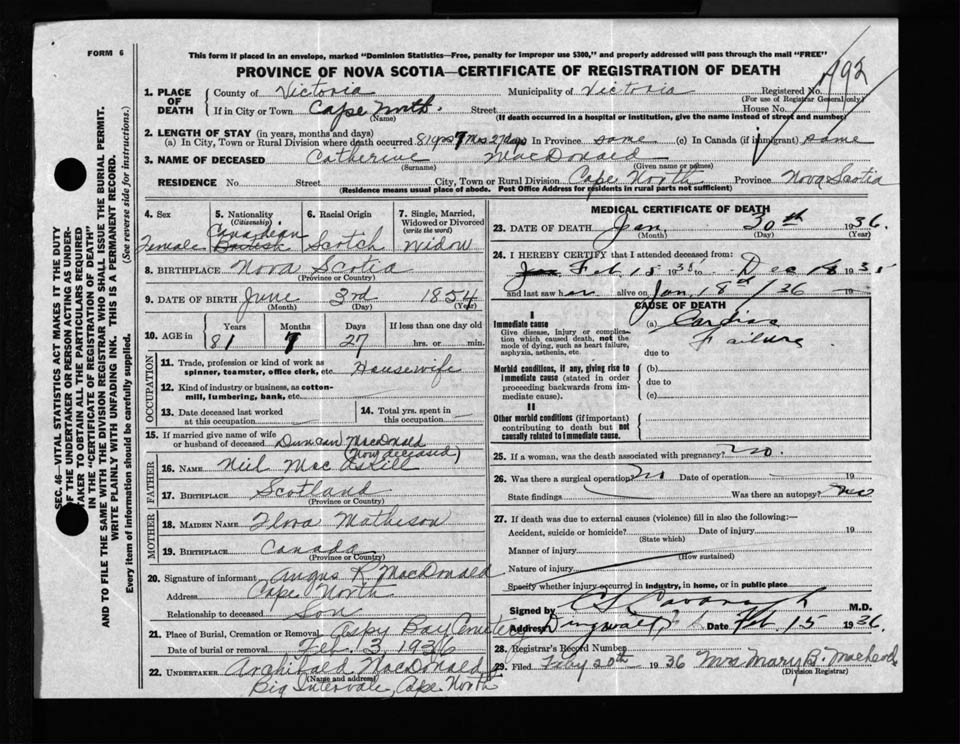 FORM 6
This form if placed in an envelope, marked "Dominion Statistics—Free, penalty for improper use $300," and properly addressed will pass through the mail "FREE"
PROVINCE OF NOVA SCOTIA—CERTIFICATE OF REGISTRATION OF DEATH
992
1. PLACE OF DEATH County of Victoria Municipality of Victoria Registered No.
(For use of Registrar General only)
If in City or Town Cape North Street House No.
(Name) (If death occurred in a hospital or institution, give the name instead of street and number)
2. LENGTH OF STAY (in years, months and days)
(a) In City, Town or Rural Division where death occurred 81 yrs 7 Mos 27 days In Province same (c) In Canada (if immigrant) same
3. NAME OF DECEASED Catherine MacDonald
(Surname) (Given name or names)
RESIDENCE No. Street City, Town or Rural Division Cape North Province Nova Scotia
(Residence means usual place of abode. Post Office Address for residents in rural parts not sufficient)
SEC. 46—VITAL STATISTICS ACT MAKES IT THE DUTY
OF THE UNDERTAKER OR PERSON ACTING AS UNDER-
TAKER TO OBTAIN ALL THE PARTICULARS REQUIRED
IN THE "CERTIFICATE OF REGISTRATION OF DEATH"
AND TO FILE THE SAME WITH THE DIVISION REGISTRAR WHO SHALL ISSUE THE BURIAL PERMIT.
WRITE PLAINLY WITH UNFADING INK. THIS IS A PERMANENT RECORD.
Every item of information should be carefully supplied. (See reverse side for instructions.)
4. Sex 5. Nationality (Citizenship) 6. Racial Origin 7. Single, Married, Widowed or Divorced (write the word)
Female Canadian British Scotch Widow
8. BIRTHPLACE Nova Scotia
(Province or Country)
9. DATE OF BIRTH June 3rd 1854
(Month) (Day) (Year)
10. AGE in Years Months Days If less than one day old
81 7 27 hrs. or min.
OCCUPATION
11. Trade, profession or kind of work as spinner, teamster, office clerk, etc. Housewife
12. Kind of industry or business, as cotton-mill, lumbering, bank, etc.
13. Date deceased last worked at this occupation 14. Total yrs. spent in this occupation
15. If married give name of wife or husband of deceased Duncan MacDonald
(Now deceased)
FATHER
16. NAME Niel MacAskill
17. BIRTHPLACE Scotland
(Province or Country)
MOTHER
18. MAIDEN NAME Flora Matheson
19. BIRTHPLACE Canada
(Province or Country)
20. Signature of informant Angus K. MacDonald
Address Cape North
Relationship to deceased Son
21. Place of Burial, Cremation or Removal Aspy Bay Cemetery
Date of burial or removal Feb. 3 1936
22. UNDERTAKER Archibald MacDonald
(Name and address)
Big Intervale, Cape North
MEDICAL CERTIFICATE OF DEATH
23. DATE OF DEATH Jan 30th 1936
(Month) (Day) (Year)
24. I HEREBY CERTIFY that I attended deceased from:
Jan Feb 15 1935 to Dec 18 1935
and last saw her alive on Jan 18th /36 19
CAUSE OF DEATH
I
Immediate cause (a) Cardiac
Failure
Give disease, injury or complication which caused death, not the mode of dying, such as heart failure, asphyxia, asthenia, etc. due to
Morbid conditions, if any, giving rise to immediate cause (stated in order proceeding backwards from immediate cause). (b)
due to
(c)
II
Other morbid conditions (if important) contributing to death but not causally related to immediate cause.
25. If a woman, was the death associated with pregnancy? no.
26. Was there a surgical operation? no Date of operation 19
State findings Was there an autopsy? no
27. If death was due to external causes (violence) fill in also the following:—
Accident, suicide or homicide? Date of injury 19
(State which)
Manner of injury
(How sustained)
Nature of injury
Specify whether injury occurred in industry, in home, or in public place
Signed by C S Cavanagh M.D.
Address Dingwall Date Feb. 15 1936
28. Registrar's Record Number
29. Filed Feby 20th 1936 Mrs Mary B.
(Division Registrar)